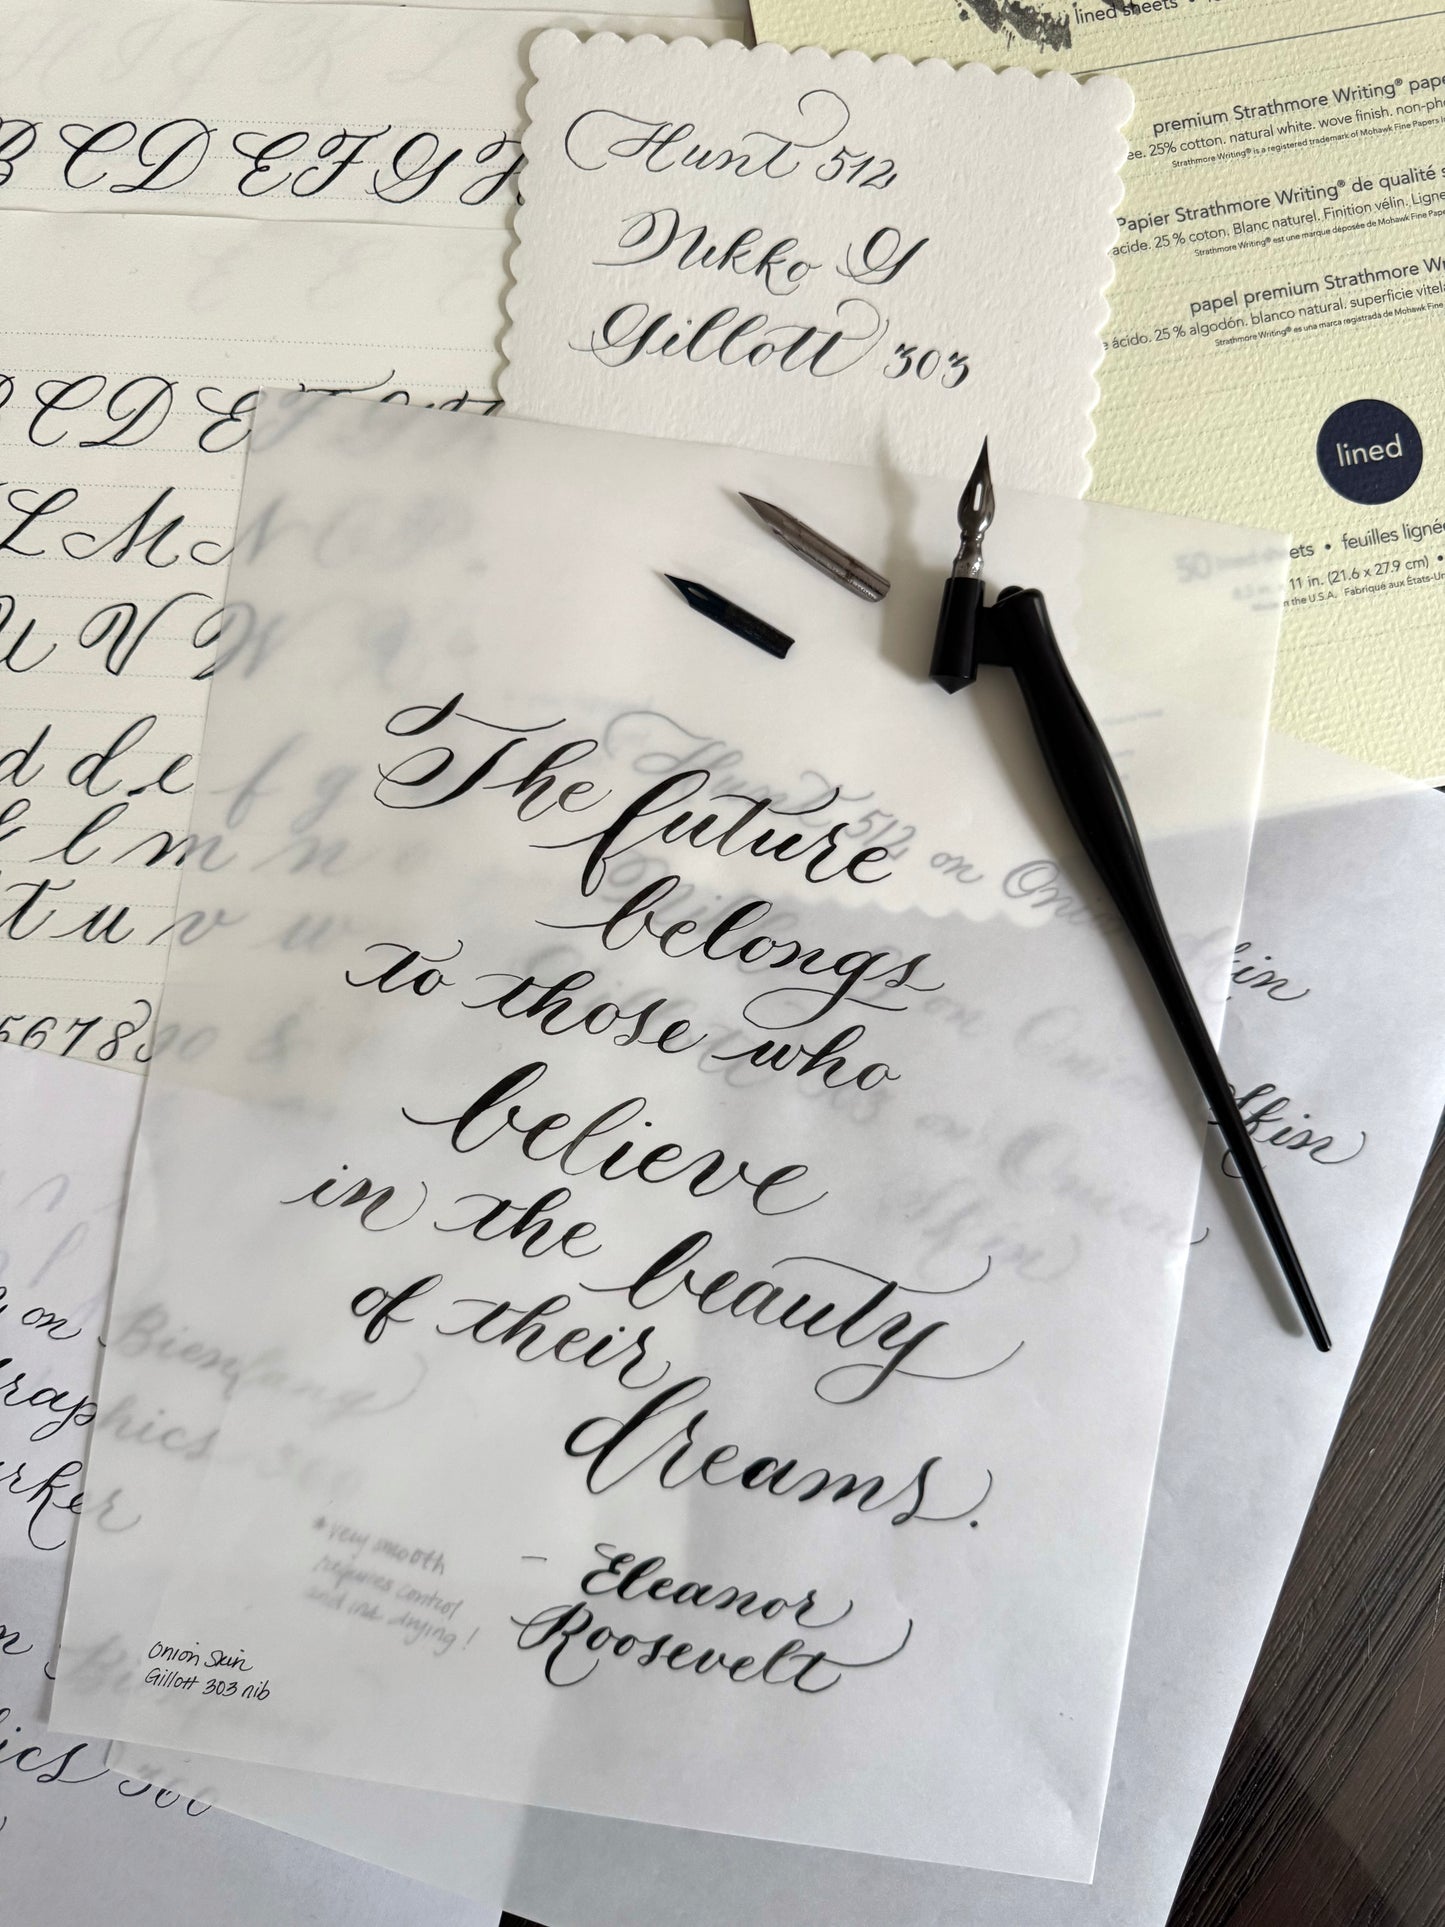 lined sheets
premium Strathmore Writing® pape
25% cotton. natural white. wove finish. non-ph
Strathmore Writing® is a registered trademark of Mohawk Fine Papers
Papier Strathmore Writing® de qualité s
acide. 25 % coton. Blanc naturel. Finition vélin. Ligne
Strathmore Writing® est une marque déposée de Mohawk Fine Pape
papel premium Strathmore Wr
ácido. 25 % algodón. blanco natural. superficie vitela
Strathmore Writing® es una marca registrada de Mohawk Fine
lined
50 lined sheets • feuilles ligné
11 in. (21.6 x 27.9 cm) •
in the U.S.A. Fabriqué aux États-Un
Hunt 512
Nikko G
Gillott 303
B C D E F G H
C D E F
L M N
U V W
d d e f g
l m n
t u v w
5 6 7 8 9 0 &
The future
belongs
to those who
believe
in the beauty
of their
dreams.
- Eleanor
Roosevelt
Onion Skin
Gillott 303 nib
Hunt 512 on Onion Skin
on Onion Skin
on
Bienfang
Graphics 360
Marker
* very smooth
requires control
and ink drying!
ics 360